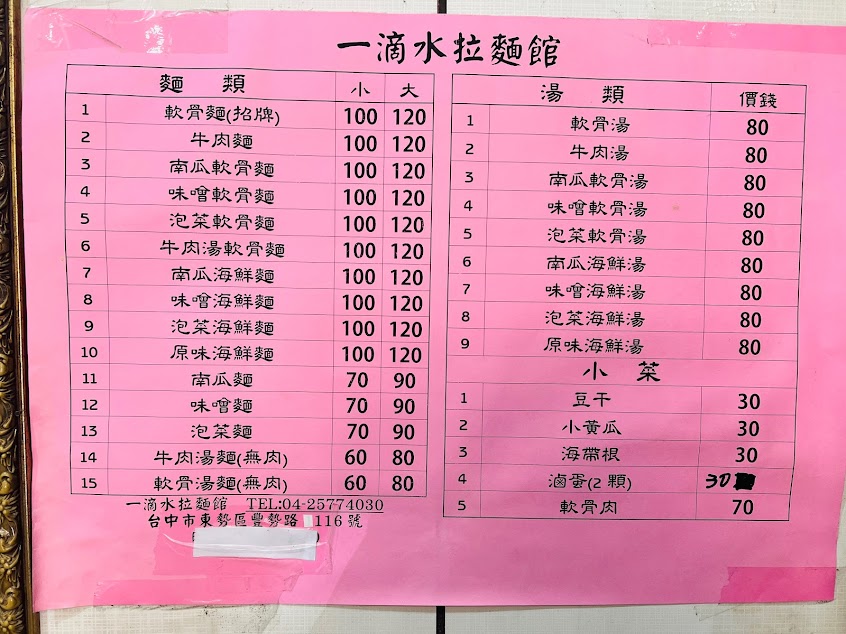 一滴水拉麵館
麵類 小 大
1 軟骨麵(招牌) 100 120
2 牛肉麵 100 120
3 南瓜軟骨麵 100 120
4 味噌軟骨麵 100 120
5 泡菜軟骨麵 100 120
6 牛肉湯軟骨麵 100 120
7 南瓜海鮮麵 100 120
8 味噌海鮮麵 100 120
9 泡菜海鮮麵 100 120
10 原味海鮮麵 100 120
11 南瓜麵 70 90
12 味噌麵 70 90
13 泡菜麵 70 90
14 牛肉湯麵(無肉) 60 80
15 軟骨湯麵(無肉) 60 80
一滴水拉麵館 TEL:04-25774030
台中市東勢區豐勢路 116號
湯類 價錢
1 軟骨湯 80
2 牛肉湯 80
3 南瓜軟骨湯 80
4 味噌軟骨湯 80
5 泡菜軟骨湯 80
6 南瓜海鮮湯 80
7 味噌海鮮湯 80
8 泡菜海鮮湯 80
9 原味海鮮湯 80
小菜
1 豆干 30
2 小黃瓜 30
3 海帶根 30
4 滷蛋(2顆) 30
5 軟骨肉 70